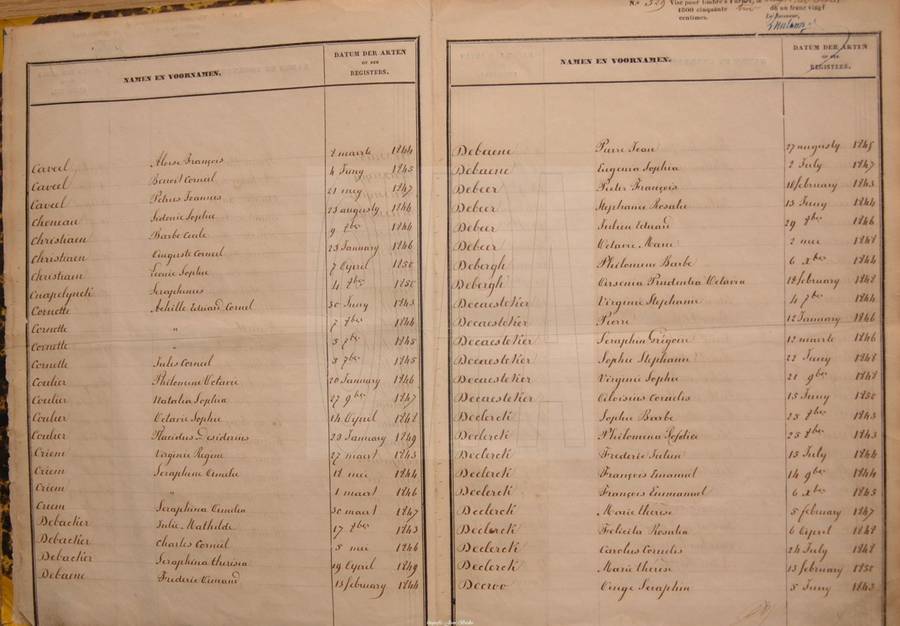 NAMEN EN VOORNAMEN.
DATUM DER AKTEN
OF DER
REGISTERS.
Caveel Aloise François 2 maarte 1844
Caveel Benoit Corneil 4 Juny 1845
Caveel Petrus Joannes 21 mey 1847
Choneau Sidonie Sophie 23 augusty 1844
Christiaen Barbe Cecile 9 1844
Christiaen Auguste Corneil 23 January 1846
Christiaen Leonie Sophie 7 April 1850
Cnapelynck Seraphinus 4 1850
Cornette Achille Eduard Corneil 30 Juny 1843
Cornette " 7 1844
Cornette " 3 7ber 1845
Cornette Jules Corneil 3 7ber 1845
Coulier Philomene Octavie 20 January 1846
Coulier Natalia Sophia 27 9ber 1847
Coulier Octavie Sophie 14 April 1848
Coulier Placidus Desiderius 23 January 1849
Criem Virginie Regine 27 maart 1843
Criem Seraphine Amelie 18 mei 1844
Criem " 1 maart 1846
Criem Seraphina Amelia 30 maart 1847
Debacker Julie Mathilde 17 1843
Debacker Charles Corneil 5 mei 1846
Debacker Seraphina Theresia 19 April 1849
Debaene Frederic Amand 13 february 1844
N.° 329 Visé pour timbre à
1800 cinquante
centimes.
dû un franc vingt
Le Receveur,
NAMEN EN VOORNAMEN.
DATUM DER AKTEN
OF DER
REGISTERS.
Debaene Pierre Jean 27 augusty 1845
Debaene Eugenia Sophia 2 July 1847
Debeer Pieter François 18 february 1843
Debeer Stephanie Rosalie 13 Juny 1844
Debeer Julien Eduard 29 1846
Debeer Octavie Marie 2 mei 1848
Debergh Philomene Barbe 6 xber 1844
Debergh Arsenia Prudentia Octavia 12 february 1848
Decaesteker Virginie Stephanie 4 7ber 1844
Decaesteker Pierre 12 January 1846
Decaesteker Seraphin Grégoire 12 maarte 1846
Decaesteker Sophie Stephanie 22 Juny 1848
Decaesteker Virginie Sophie 21 9ber 1848
Decaesteker Aloisius Cornelis 15 Juny 1850
Declerck Sophie Barbe 23 1843
Declerck Philomena 25 1843
Declerck Frederic Julien 13 July 1844
Declerck François Emanuel 14 9ber 1844
Declerck François Emmanuel 6 xber 1845
Declerck Marie Therese 5 february 1847
Declerck Felicita Rosalia 6 April 1848
Declerck Carolus Cornelis 24 July 1848
Declerck Marie Therese 13 february 1850
Decroo Ange Seraphin 5 Juny 1843